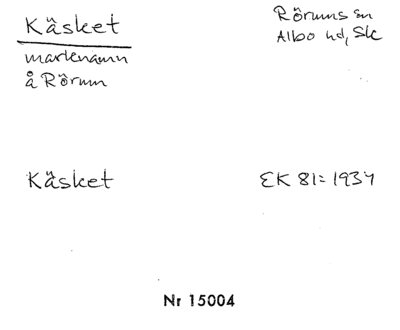 Käsket
Rörums sn
Albo hd, Sk
marknamn
å Rörum
Käsket
EK 81 = 1934
Nr 15004